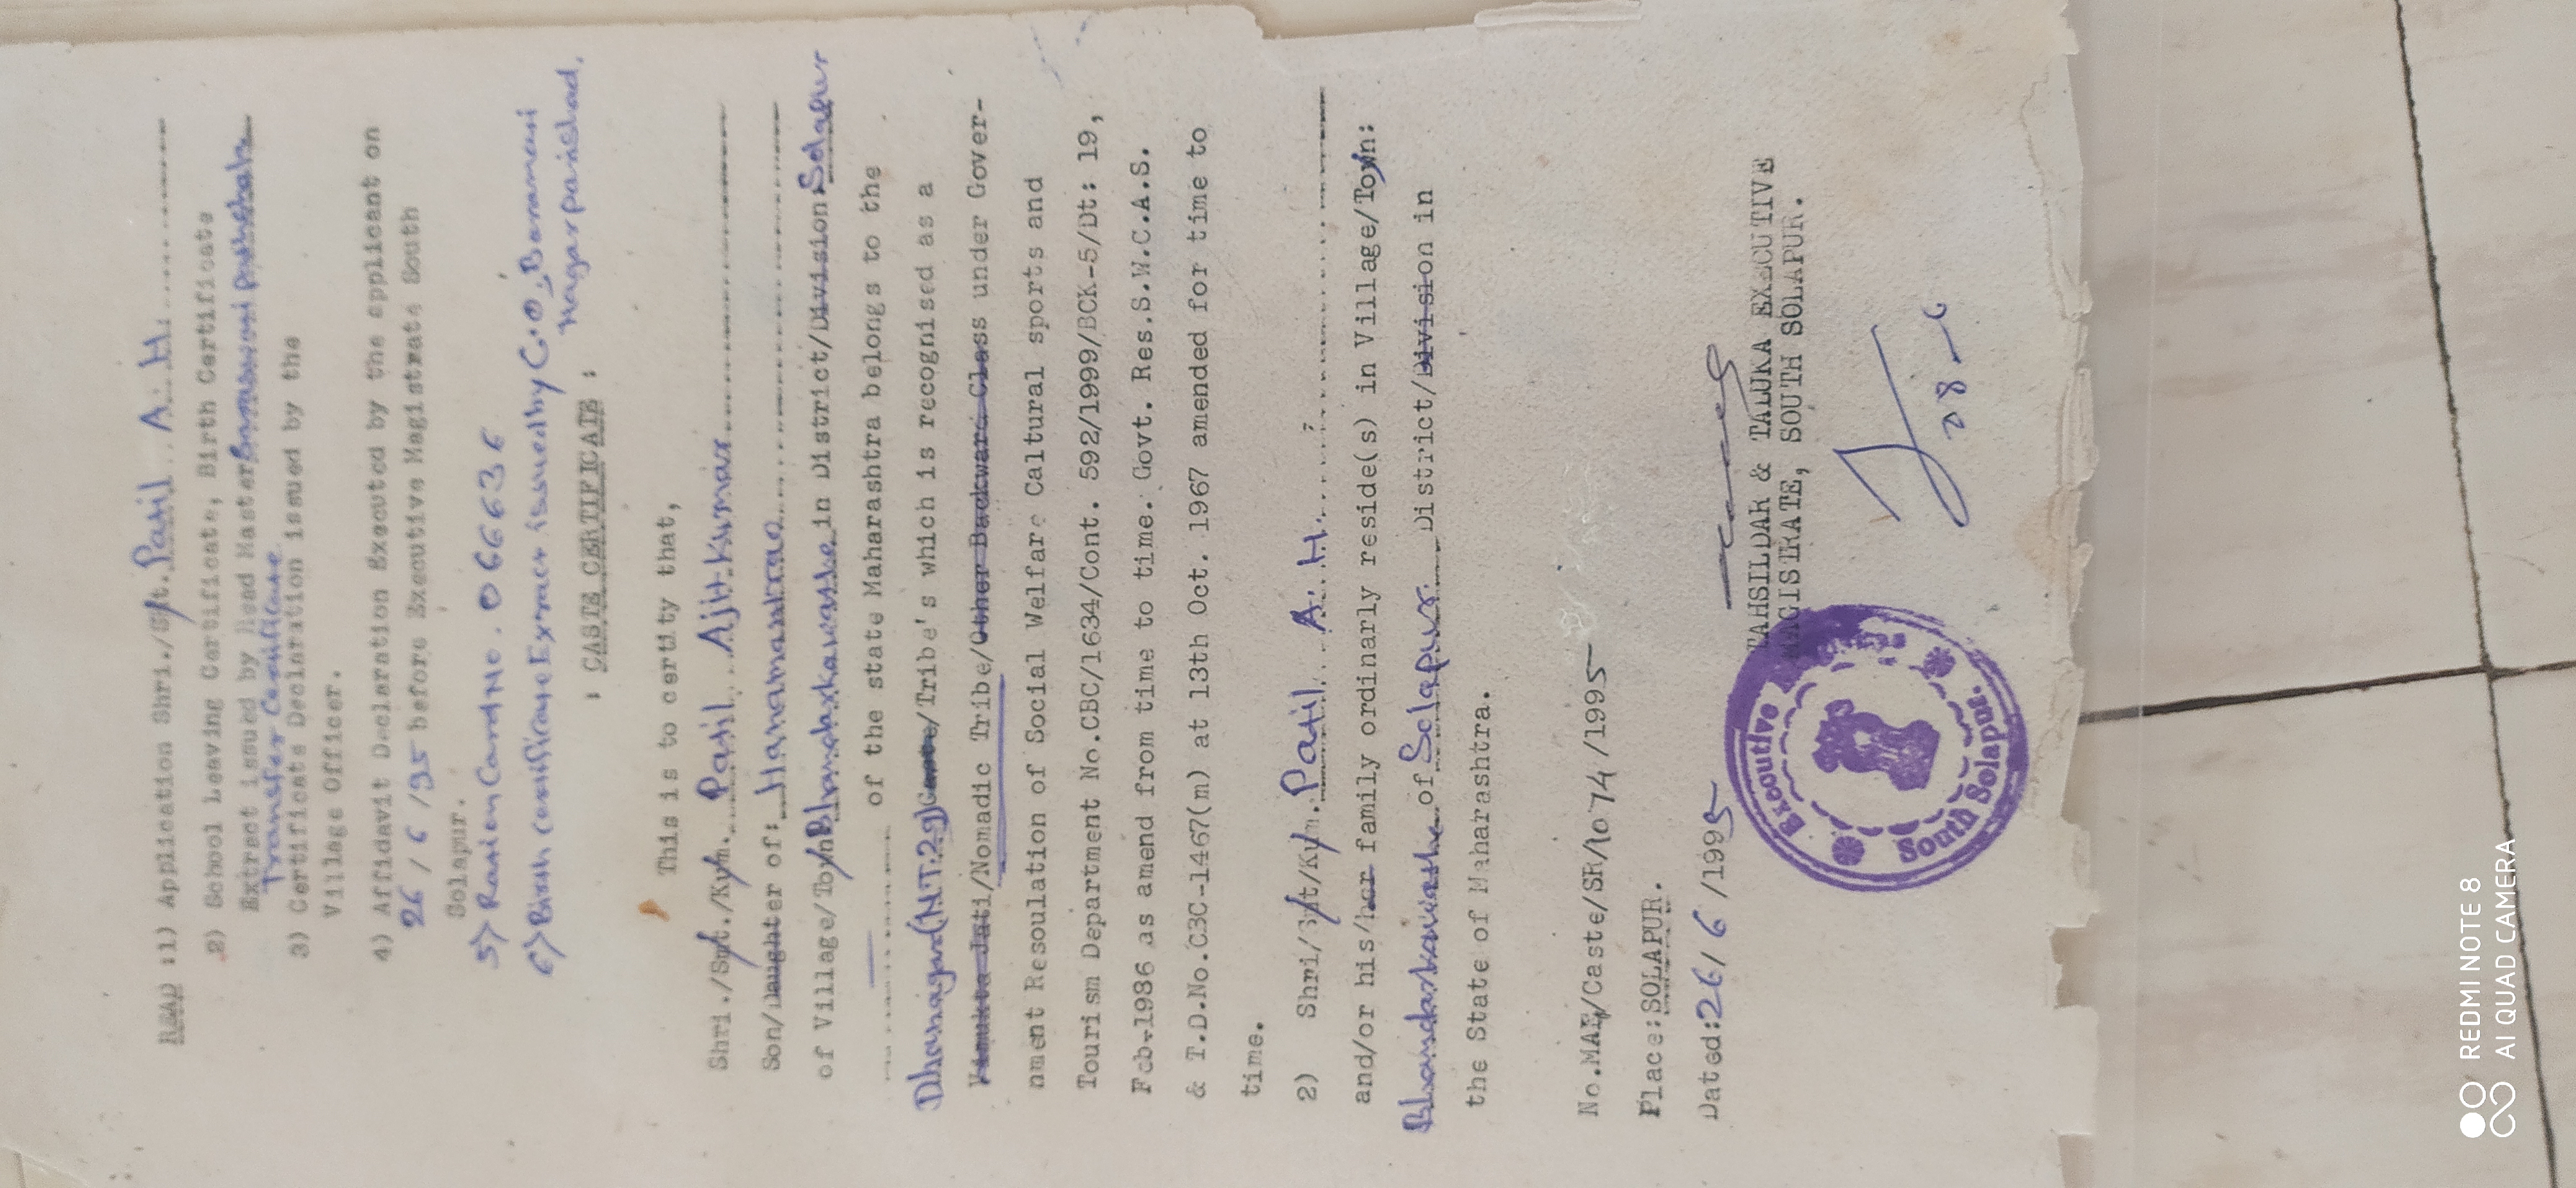 READ :1) Application Shri./Smt. Patil A. H.
2) School Leaving Certificate, Birth Certificate
Extract issued by Head Master
Transfer Certificate
3) Certificate Declaration issued by the
Village Officer.
4) Affidavit Declaration Executed by the applicant on
26/6/95 before Executive Magistrate South
Solapur.
5) Rasion Card No. 066636
6) Birth Extract issued by C.O., Baramani
Nagarparishad.
: CASTE CERTIFICATE :
This is to certity that,
Shri./Smt./Kum. Patil Ajitkumar
Son/Daughter of: Hanamantrao
of Village/Town Bhandarkawathe in District/Division Solapur
of the state Maharashtra belongs to the
Dhanagar (N.T.29) Caste/Tribe's which is recognised as a
Vimukta Jati/Nomadic Tribe/Other Backward Class under Gover-
nment Resoulation of Social Welfare Caltural sports and
Tourism Department No.CBC/1634/Cont. 592/1999/BCK-5/Dt: 19,
Feb.1986 as amend from time to time. Govt. Res.S.W.C.A.S.
& T.D.No.CBC-1467(m) at 13th Oct. 1967 amended for time to
time.
2) Shri/Smt/Kum. Patil A. H.
and/or his/her family ordinarly reside(s) in Village/Town:
Bhandarkawathe of Solapur District/Division in
the State of Maharashtra.
No.MAE/Caste/SR/1074/1995
Place:SOLAPUR.
Dated:26/6/1995
TAHSILDAR & TALUKA EXECUTIVE
MAGISTRATE, SOUTH SOLAPUR.
Executive
South Solapur.
REDMI NOTE 8
AI QUAD CAMERA